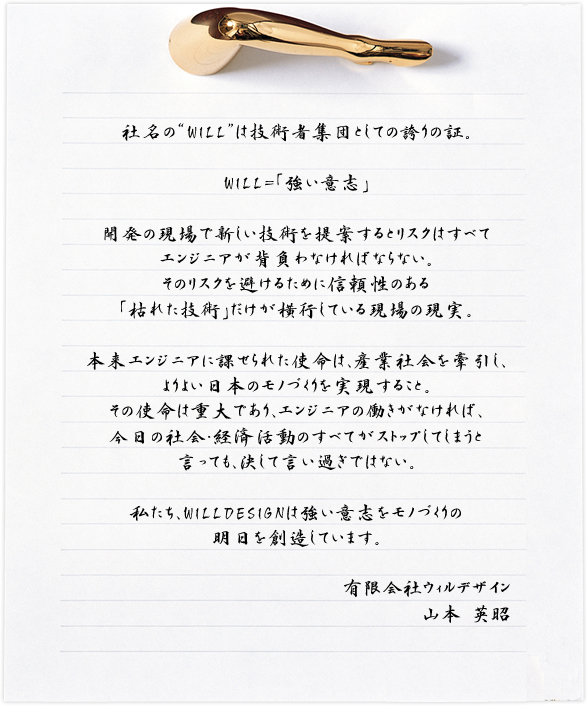 社名の“WILL”は技術者集団としての誇りの証。
WILL=「強い意志」
開発の現場で新しい技術を提案するとリスクはすべて
エンジニアが背負わなければならない。
そのリスクを避けるために信頼性のある
「枯れた技術」だけが横行している現場の現実。
本来エンジニアに課せられた使命は、産業社会を牽引し、
よりよい日本のモノづくりを実現すること。
その使命は重大であり、エンジニアの働きがなければ、
今日の社会・経済活動のすべてがストップしてしまうと
言っても、決して言い過ぎではない。
私たち、WILLDESIGNは強い意志をモノづくりの
明日を創造しています。
有限会社ウィルデザイン
山本 英昭